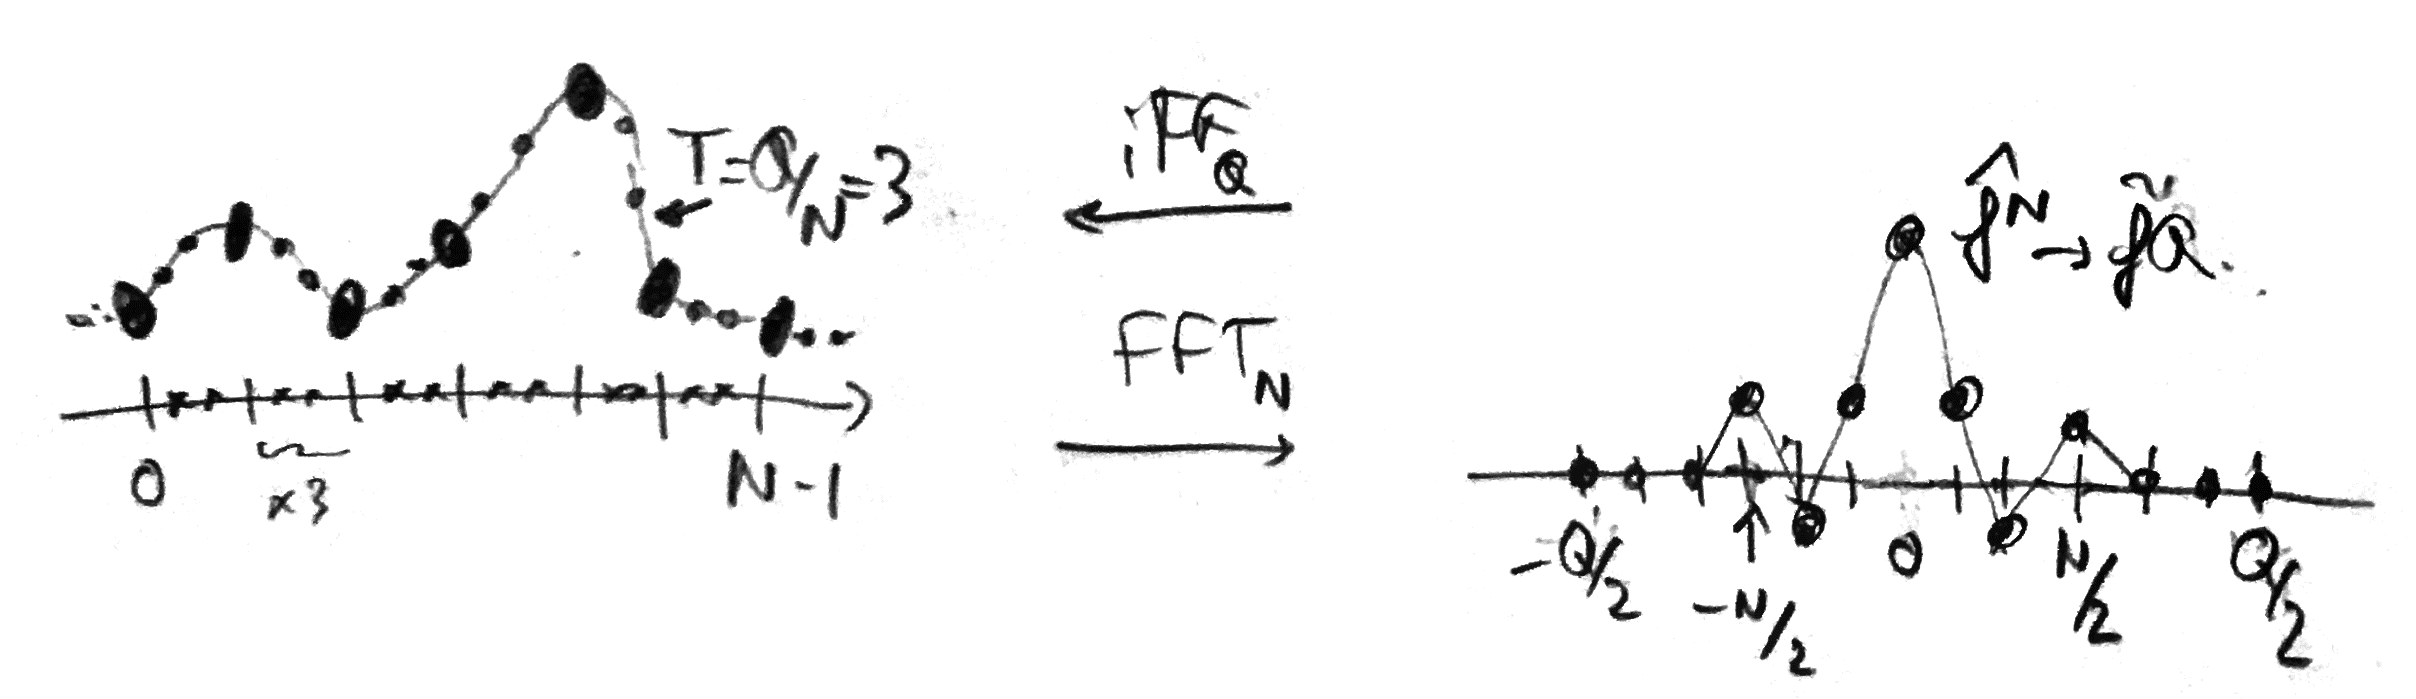 T=Q/N=3
0
x3
N-1
iFF_Q
FFT_N
f̂^N → f̃^Q.
-Q/2
-N/2
0
N/2
Q/2